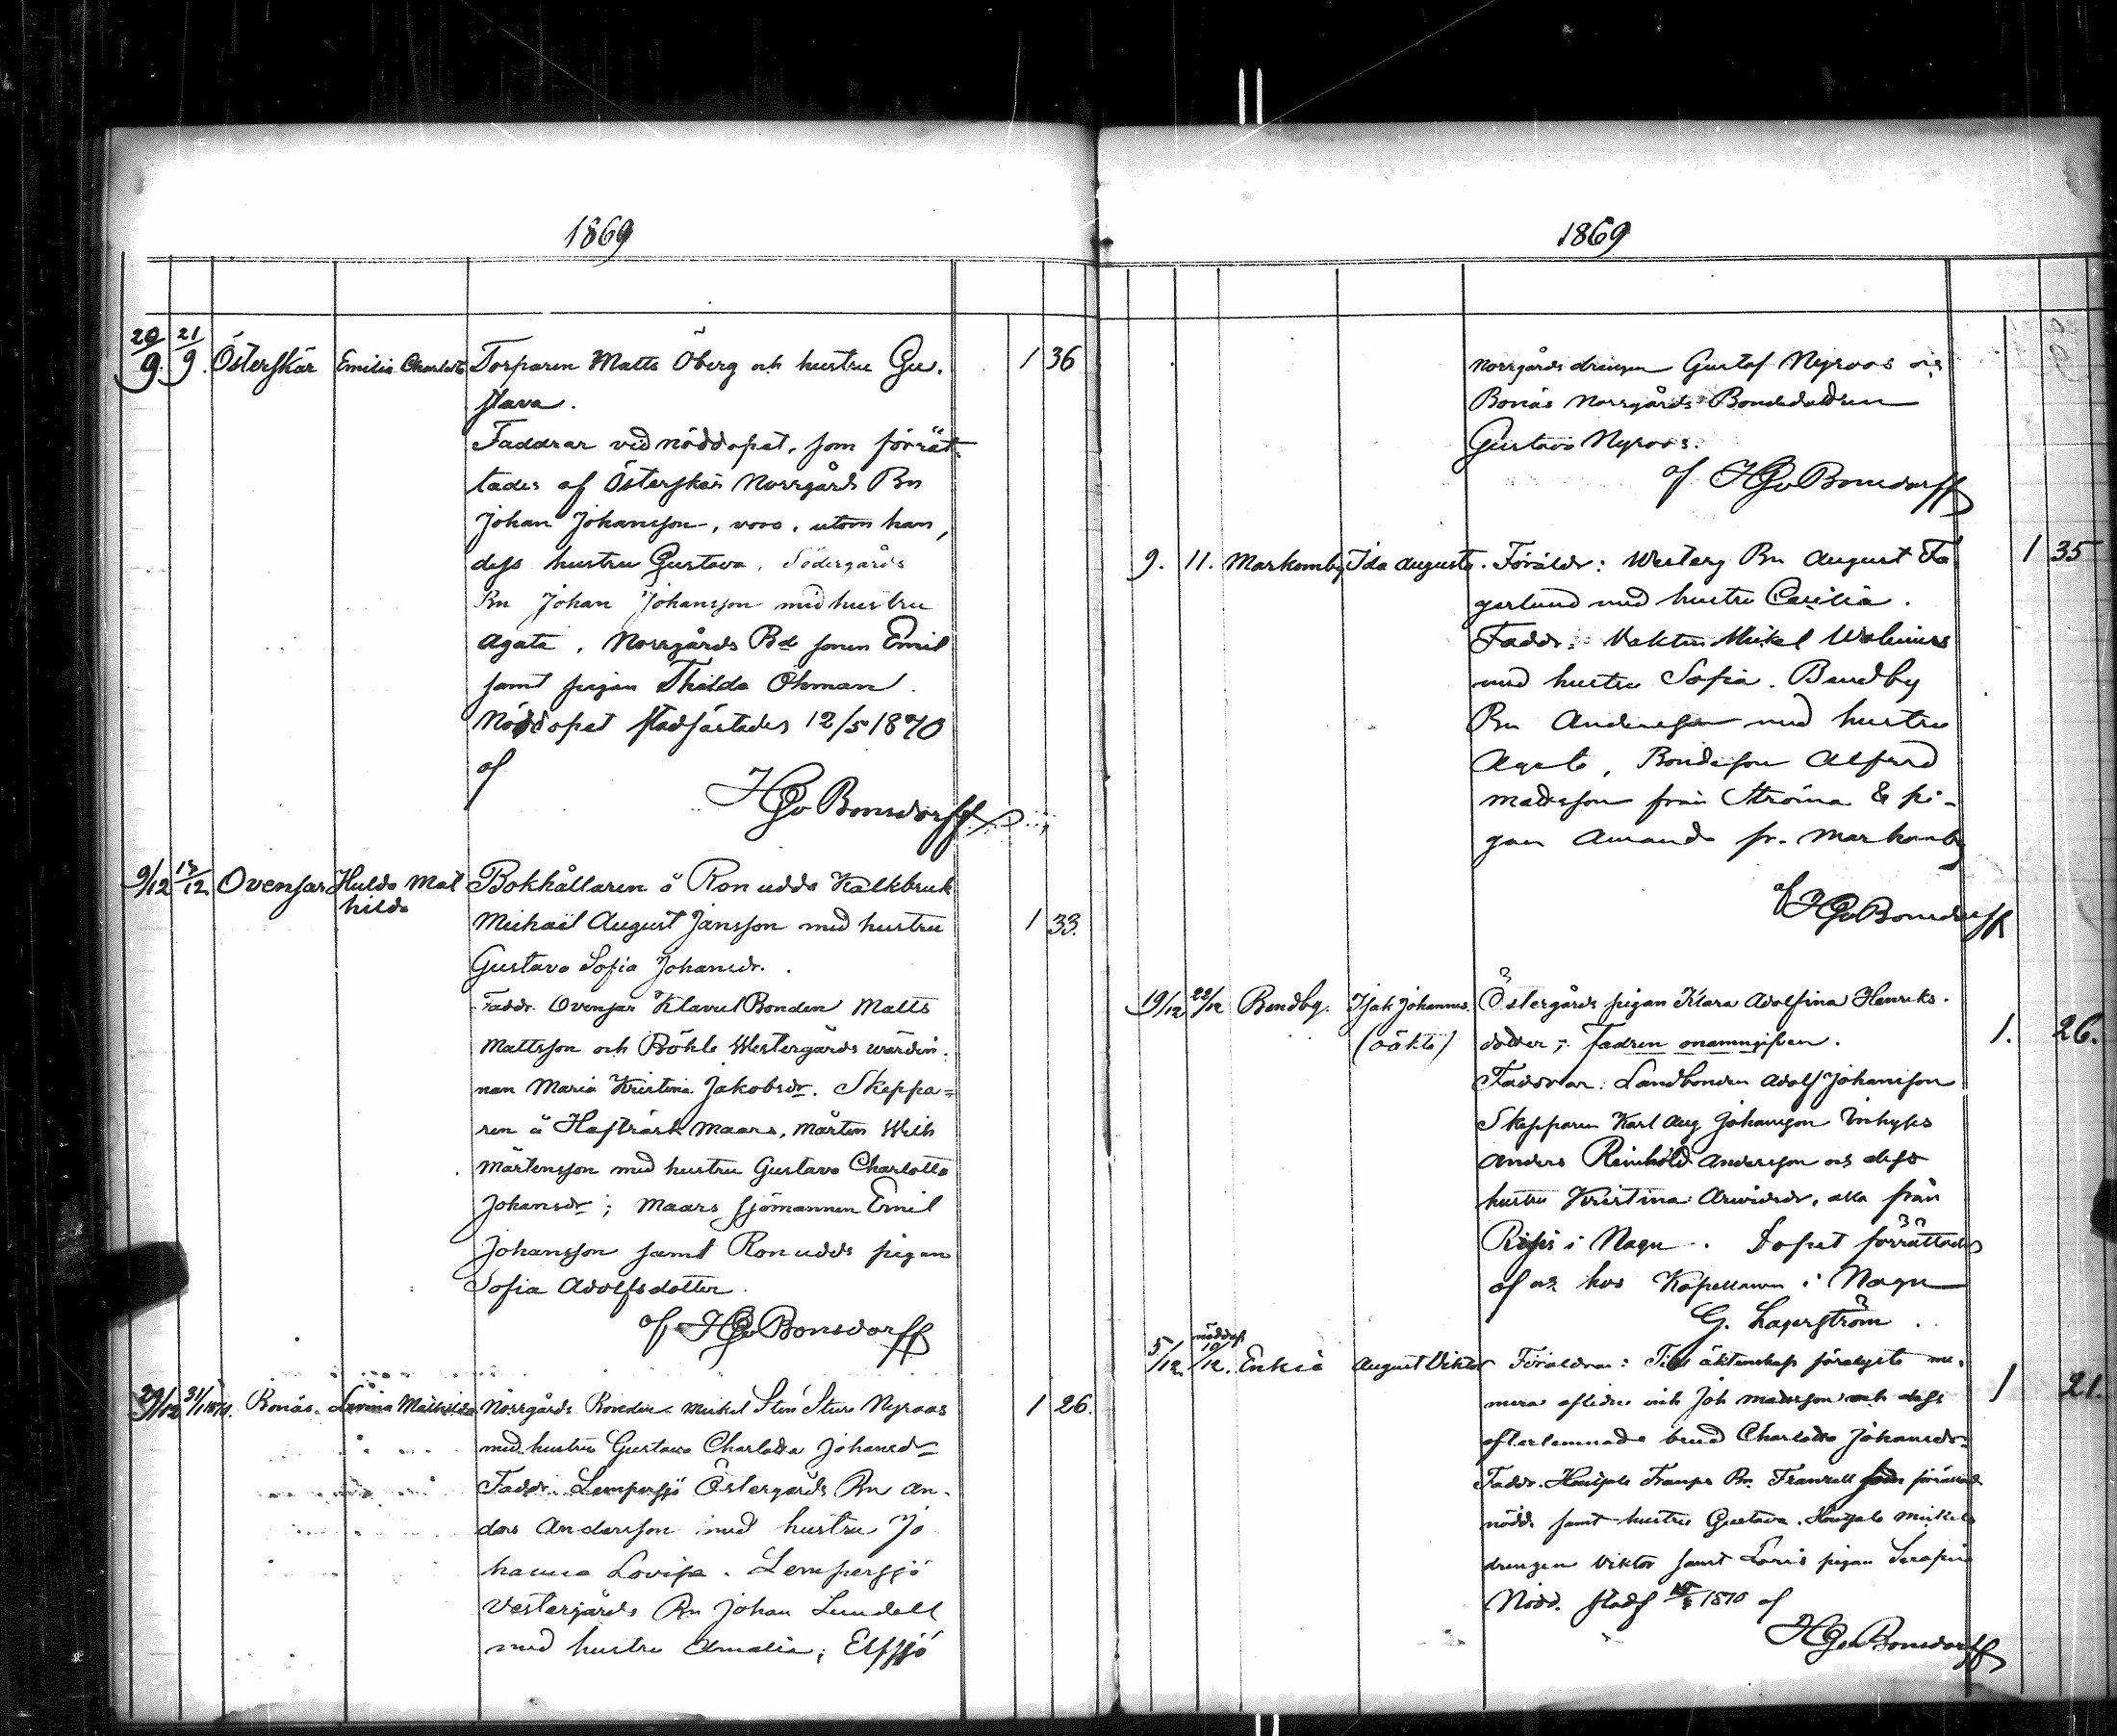 1869
20/9. 21/9. Österskär Emilia Charlotta Torparen Matts Öberg och hustru Gu- 1 36
stava.
Faddrar vid nöddopet, som förrät-
tades af Österskär Norrgårds Bn
Johan Johansson, voro, utom han,
dess hustru Gustava, Södergårds
Bn Johan Johansson med hustru
Agata, Norrgårds Bd sonen Emil
samt pigan Thilda Öhman.
Nöddopet stadfästades 12/5 1870
af
HGvBonsdorff
9/12 13/12 Ovensar Hulda Mat Bokhållaren å Ronudds Kalkbruk
hilda
Michaël August Jansson med hustru 1 33.
Gustava Sofia Johansdr.
Faddr. Ovensar Klavus Bonden Matts
Mattsson och Böhle Westergårds wärdin-
nan Maria Kristina Jakobsdr. Skeppa=
ren å Hafträsk Maars, Mårten Wilh
Mårtensson med hustru Gustava Charlotta
Johansdr; Maars sjömannen Emil
Johansson samt Ronudds pigan
Sofia Adolfsdotter.
af HGvBonsdorff
29/12 31/1 1870. Bonäs. Lovina Mathilda Norrgårds Bonden Mickel Sten Sture Nyroos 1 26.
med hustru Gustava Charlotta Johansdr
Faddr. Lempersjö Östergårds Bn An-
ders Andersson med hustru Jo
hanna Lovisa. Lempersjö
Vestergårds Bn Johan Lundell
med hustru Amalia; Elfsjö
1869
Norrgårds drengen Gustaf Nyroos och
Bonäs Norrgårds Bondedottren
Gustava Nyroos.
af HGvBonsdorff
9. 11. Markomby Ida Augusta. Föräldr: Westerg Bn August Fa 1 35
gerlund med hustru Cecilia.
Faddr: Vakten Mickel Walenius
med hustru Sofia. Bendby
Bn Andersson med hustru
Agata, Bondeson Alfred
Madsson från Ströma & pi-
gan Amanda fr. Markomby
af HGvBonsdorff
19/12 22/12 Bendby. Isak Johannes. Östergårds pigan Klara Adolfina Henriks-
(oäkta) dotter; Fadren onamngifven. 1. 26.
Faddrar: Landbonden Adolf Johansson
Skepparen Karl Aug Johansson Inhyses
Anders Reinhold Andersson och dess
hustru Kristina Arvidsdr, alla från
i Nagu. Dopet förrättades
af och hos Kapellanen i Nagu
G. Lagerström.
5/12. nöddop 10/12. Enkis August Viktor Föräldrar: Till äktenskap förelyste nu-
mera aflidne Joh Madsson och dess 1 21.
efterlemnade brud Charlotta Johansdr.
Faddr. Bn. Franzell som förrättade
nödd. samt hustru Gustava. Mickels
drengen Viktor samt pigan Serafina
Nödd. stadf 1870 af
HGvBonsdorff